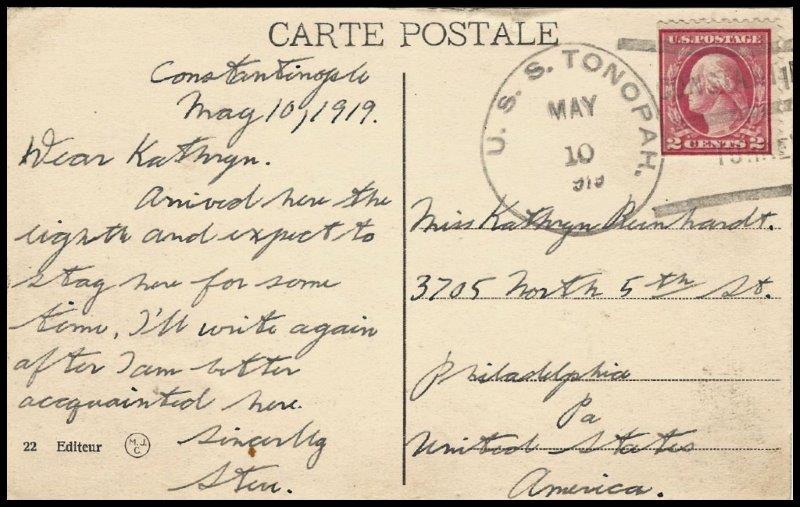 CARTE POSTALE
Constantinople
May 10, 1919.
Dear Kathryn.
Arrived here the
eighth and expect to
stay here for some
time. I'll write again
after I am better
accquainted here.
Sincerlly
22 Editeur M. J. C
U. S. S. TONOPAH.
MAY
10
919
U.S. POSTAGE
2 CENTS 2
Miss Kathryn Reinhardt.
3705 North 5th St.
Philadelphia
Pa
United States
America.